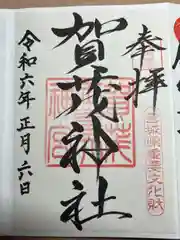 奉拝
賀茂神社
令和六年正月六日
宮城県重要文化財